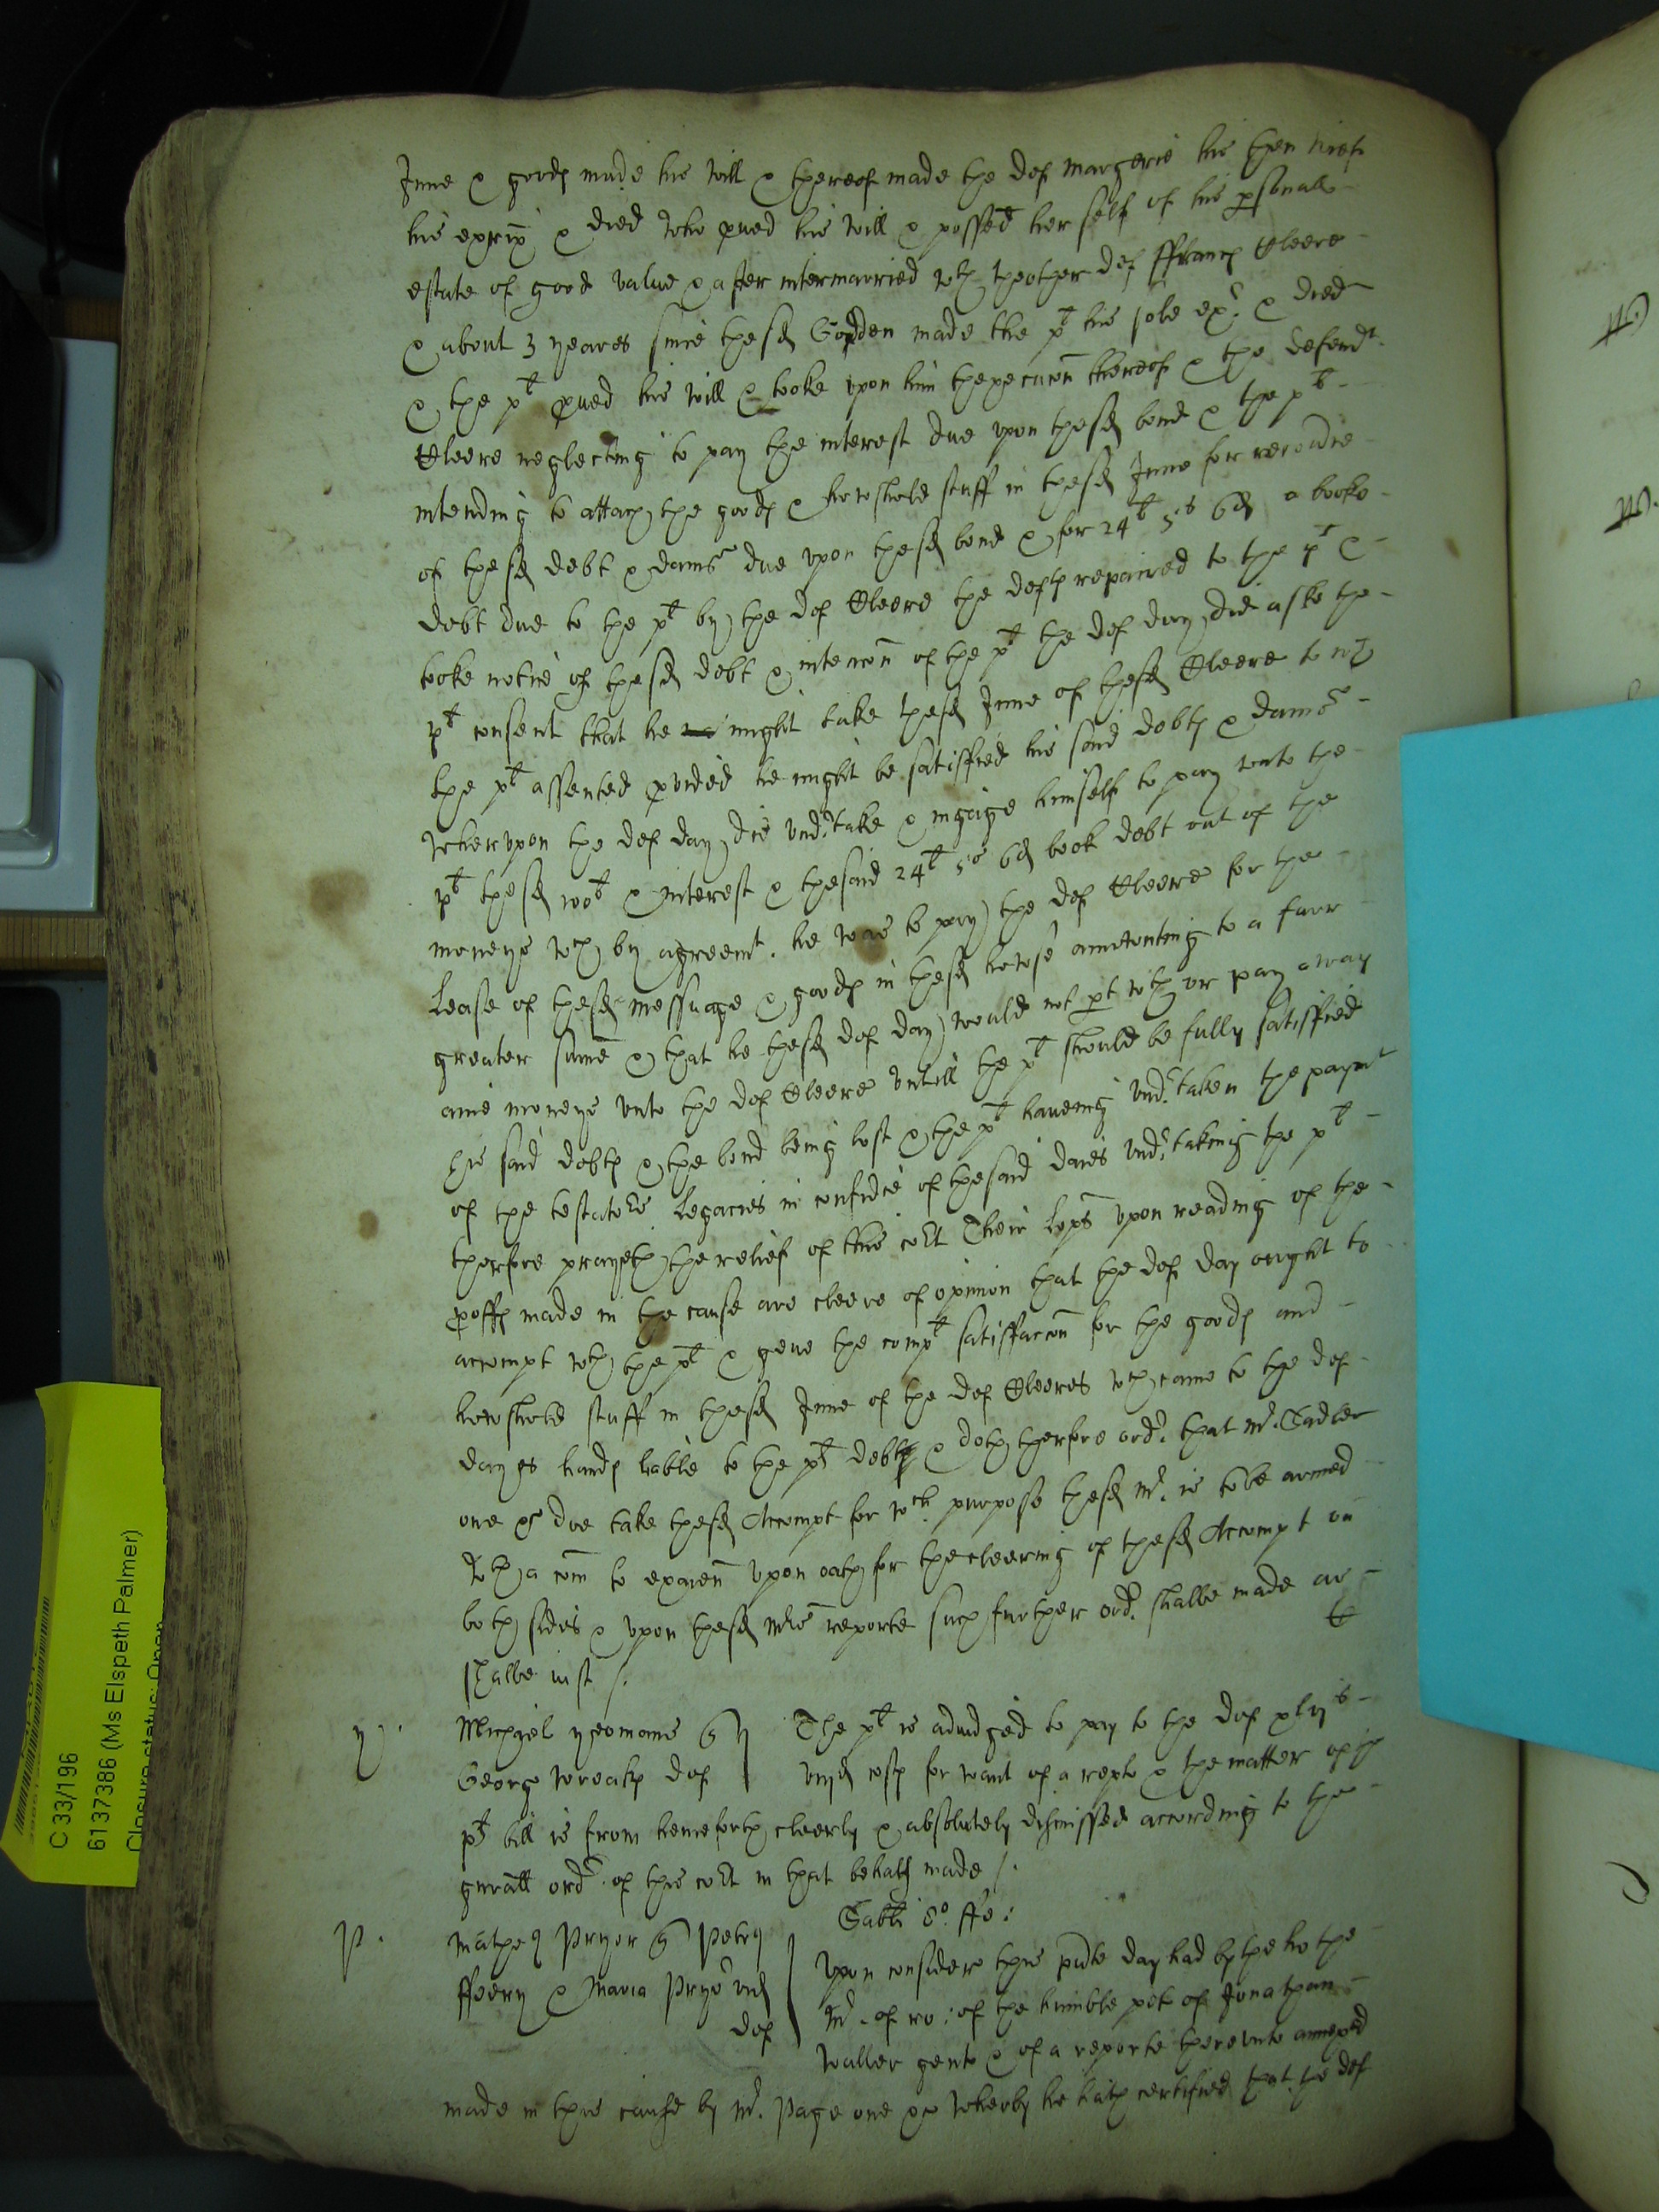 Inne & goods made his will & thereof made the def Margerie his then wief
his exrix & died who pved his will & possed her self of his psonall
estate of good value & after intermarried wth theother def ffrancs Cleere
& about 3 yeares since the sd Godden made the pt his sole exr. & died
& the pt pved his will & tooke upon him thexecucon thereof & the defendt.
Cleere neglecting to pay the interest due upon the sd bond & the plt
intending to attach the goods & howshold stuff in the sd Inne for recovrie
of the sd debt & dams due upon the sd bond & for 24l 5s 6d a booke
debt due to the plt by the def Cleere the defts repaired to the pt &
tooke notice of the sd debt & intencon of the pt the def day did aske the
plt consent that he might take the sd Inne of the sd Cleere to wch
the plt assented pvided he might be satisfied his said debts & dams
Whereupon the def day did undrtake & ingage himself to pay unto the
plt the sd 100l & interest & thesaid 24l 5s 6d book debt out of the
moneys wch by agreemt. he was to pay the def Cleere for the
Lease of the sd messuage & goods in the sd howse amounting to a farr
greater sume & that he the sd def day would not pt wth or pay away
anie moneys unto the def Cleere untill the pt should be fully satisfied
his said debts & the bond being lost & the pt haveing undrtaken the paymt
of the testators Legacies in confidce of thesaid daies undrtaking the pt
therfore prayeth the relief of this cort Their lops upon reading of the
proffs made in the cause are cleere of opinion that the def day ought to
accompt wth the plt & geve the complt satisfaccon for the goods and
howshold stuff in the sd Inne of the def Cleeres wch came to the def
dayes hands liable to the plt debts & doth therfore ordr. that Mr. Sadler
one &c doe take the sd Accompt for wch purpose the sd Mr. is to be armed
wth a com to examn upon oath for the cleering of the sd Accompt on
both sides & upon the sd Mrs reporte such further ordr. shalbe made as
shalbe iust /.
y. Michael yeomans q
George Wreath def
The plt is adiudged to pay to the def xlvjs
viijd costs for want of a replc & the matter of ye
plt bill is from henceforth cleerly & absolutely dismissed according to the
genrall ordr. of this cort in that behalf made /.
Sabti 8o. ffe:
P. Matheus Pryor q Petru
ffeery & Maria Pryor vid
def
Upon considerc this pnte day had by the ho the
Mr. of ro: of the humble pet of Jonathan
Waller gent & of a reporte thereunto annexed
made in this cause by Mr. Page one &c whereby he hath certified that the def
C 33/196
6137386 (Ms Elspeth Palmer)
Closure status: Open